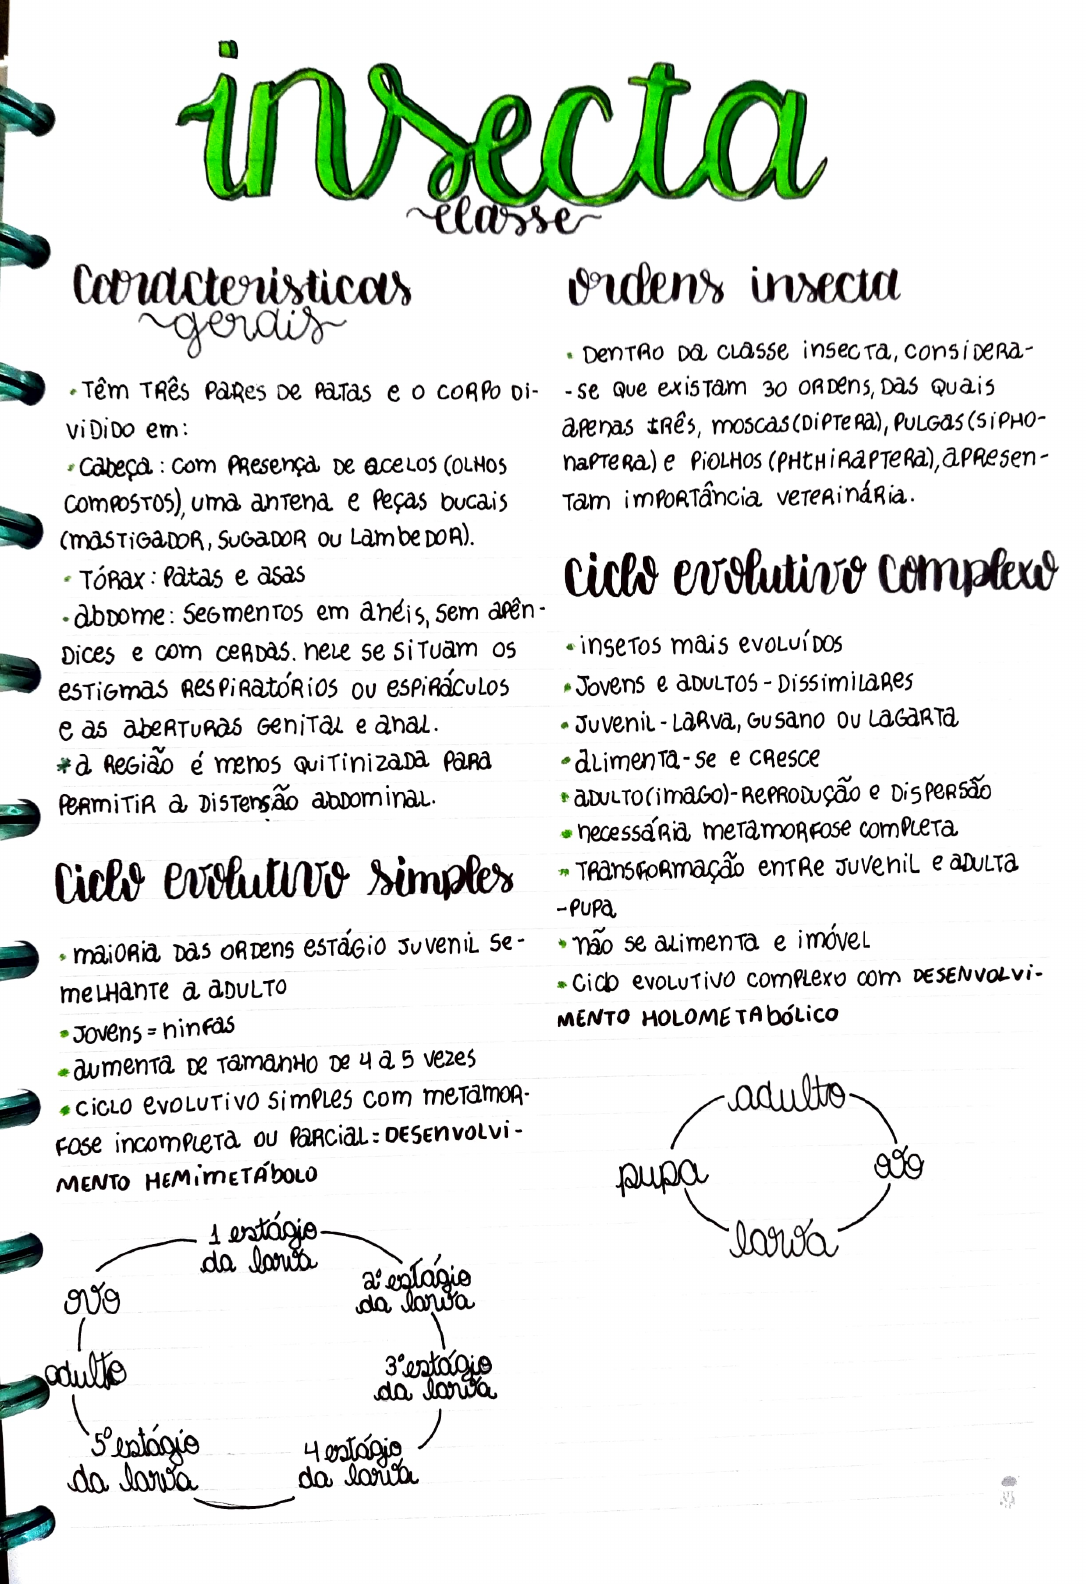 insecta
~classe~
Características
~gerais~
• Têm três pares de patas e o corpo di-
vidido em:
• Cabeça: com presença de acelos (olhos
compostos), uma antena e peças bucais
(mastigador, sugador ou lambedor).
• Tórax: Patas e asas
• abdome: segmentos em anéis, sem apên-
dices e com cerdas. nele se situam os
estigmas respiratórios ou espiráculos
e as aberturas genital e anal.
*a região é menos quitinizada para
permitir a distensão abdominal.
Ciclo evolutivo simples
• maioria das ordens estágio juvenil se-
melhante a adulto
• Jovens = ninfas
• aumenta de tamanho de 4 a 5 vezes
• ciclo evolutivo simples com metamor-
fose incompleta ou parcial = DESENVOLVI-
MENTO HEMIMETÁBOLO
1 estágio
da larva
2º estágio
da larva
3º estágio
da larva
4 estágio
da larva
5º estágio
da larva
adulto
ovo
ordens insecta
• Dentro da classe insecta, considera-
-se que existam 30 ordens, das quais
apenas três, moscas (Diptera), pulgas (Sipho-
naptera) e piolhos (Phthiraptera), apresen-
tam importância veterinária.
Ciclo evolutivo complexo
• insetos mais evoluídos
• Jovens e adultos - Dissimilares
• Juvenil - Larva, Gusano ou Lagarta
• alimenta-se e cresce
• adulto (imago) - Reprodução e dispersão
• necessária metamorfose completa
• Transformação entre juvenil e adulta
-Pupa
• não se alimenta e imóvel
• Ciclo evolutivo complexo com DESENVOLVI-
MENTO HOLOMETABÓLICO
adulto
ovo
larva
pupa